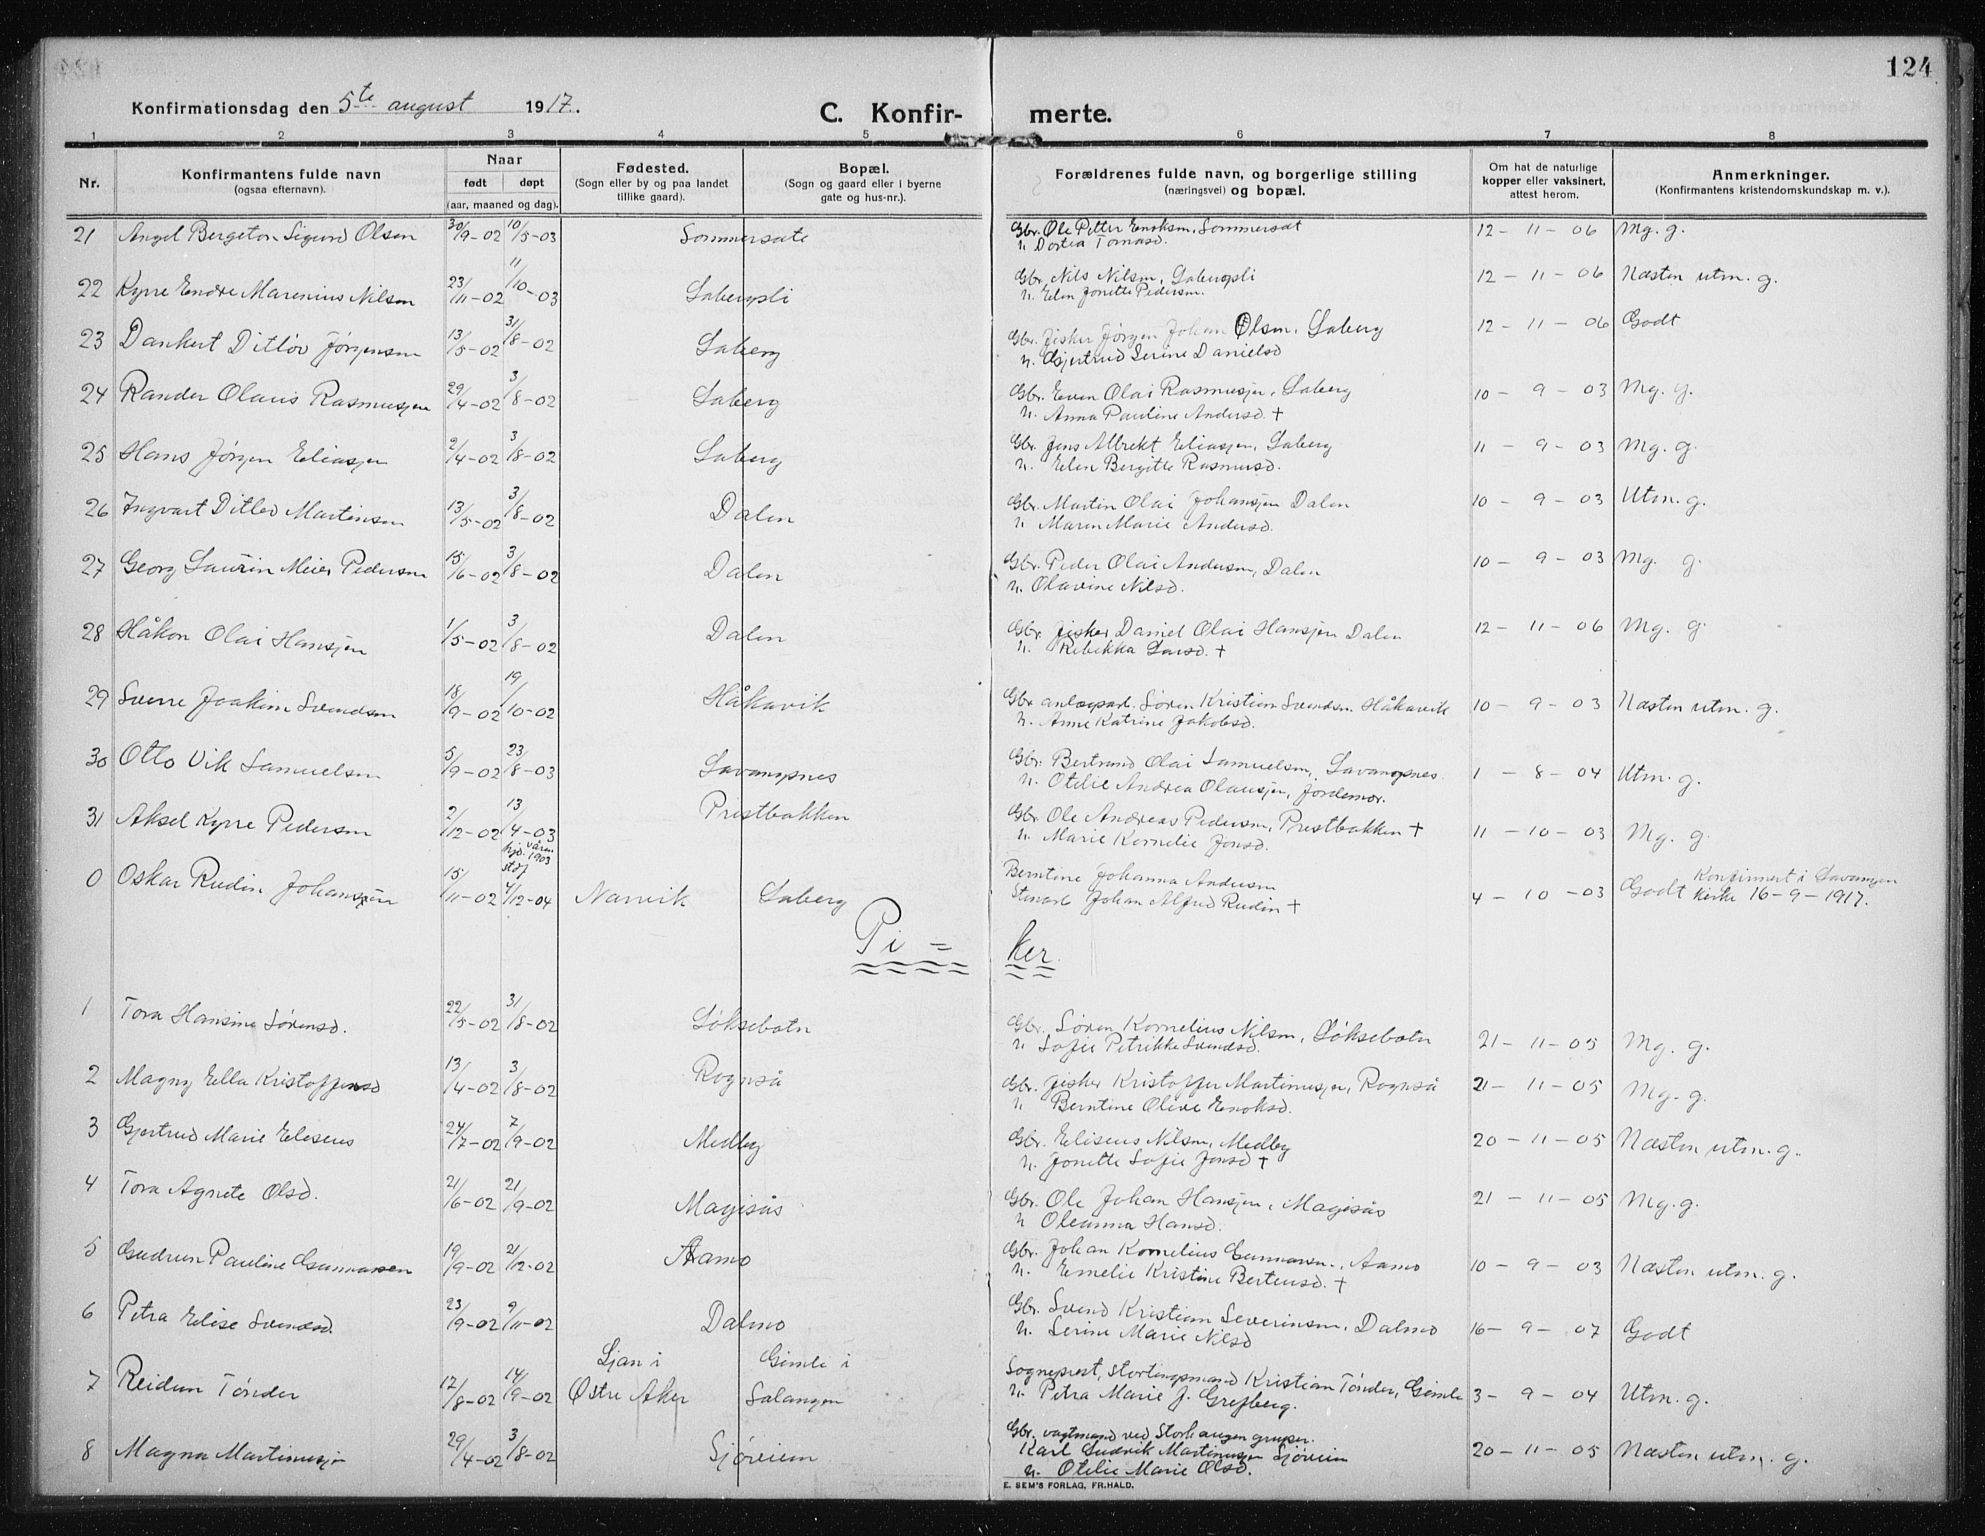 124
Konfirmationsdag den 5te august 1917.
C. Konfirmerte.
1 2 3 4 5 6 7 8
Nr. Konfirmantens fulde navn (ogsaa efternavn). Naar født døpt (aar, maaned og dag). Fødested. (Sogn eller by og paa landet tillike gaard). Bopæl. (Sogn og gaard eller i byerne gate og hus-nr.). Forældrenes fulde navn, og borgerlige stilling (næringsvei) og bopæl. Om hat de naturlige kopper eller vaksinert, attest herom. Anmerkninger. (Konfirmantens kristendomskundskap m. v.).
21 Angel Bergeton Sigurd Olsen 30/9-02 10/5-03 Sommersæte Gbr. Ole Petter Enoksen, Sommersæt 12-11-06 Mg. g.
u. Dortea Tomasd.
22 Kyrre Endre Marenius Nilsen 23/11-02 11/10-03 Sabergsli Gbr. Nils Nilsen, Sabergsli 12-11-06 Næsten utm. g.
u. Elen Jonette Pedersen.
23 Dankert Ditløv Jørgensen 13/5-02 31/8-02 Saberg Gbr. fisker Jørgen Johan Olsen, Saberg 12-11-06 Godt
u. Gjertrud Serine Danielsd
24 Rander Olaus Rasmussen 29/4-02 3/8-02 Saberg Gbr. Even Olai Rasmussen, Saberg 10-9-03 Mg. g.
u. Anna Pauline Andersd. +
25 Hans Jørgen Eliassen 2/4-02 3/8-02 Saberg Gbr. Jens Albrekt Eliassen, Saberg 11-9-03 Mg. g.
u. Elen Bergitte Rasmusd.
26 Ingvart Ditlev Martinsen 13/5-02 3/8-02 Dalen Gbr. Martin Olai Johansen Dalen 10-9-03 Utm. g.
u. Maren Marie Andersd.
27 Georg Laurin Meier Pedersen 15/6-02 3/8-02 Dalen Gbr. Peder Olai Andersen, Dalen 10-9-03 Mg. g.
u. Olavine Nilsd.
28 Håkon Olai Hansen 1/5-02 3/8-02 Dalen Gbr. fisker Daniel Olai Hansen Dalen 12-11-06 Mg. g.
u. Rebekka Larsd. +
29 Sverre Joakim Svendsen 18/9-02 19/10-02 Håkavik Gbr. anlægsarb. Søren Kristian Svendsen, Håkavik 10-9-03 Næsten utm. g.
u. Anne Katrine Jakobsd.
30 Otto Vik Samuelsen 5/9-02 23/8-03 Savangsnes Gbr. Bertrand Olai Samuelsen, Savangsnes. 1-8-04 Utm. g.
u. Otelie Andrea Olaussen, Jordemor.
31 Aksel Kyrre Pedersen 2/12-02 13/4-03 Prestbakken Gbr. Ole Andreas Pedersen, Prestbakken + 11-10-03 Mg. g.
hjd. våren 1903 stdf u. Marie Kornelie Jonsd.
0 Oskar Rudin Johansen 15/11-02 4/12-04 Narvik Saberg Berntine Johanna Andersen 4-10-03 Godt Konfirmert i Savangen
Stenarb Johan Alfred Rudin + kirke 16-9-1917.
Pi = ker.
1 Tora Hansine Sørensd. 22/5-02 31/8-02 Løksebotn Gbr. Søren Kornelius Nilsen, Løksebotn 21-11-05 Mg. g.
u. Sofie Petrikke Svendsd.
2 Magny Ella Kristoffersd 13/4-02 3/8-02 Rognså Gbr. fisker Kristoffer Martinussen, Rognså 21-11-05 Mg. g.
u. Berntine Olive Enoksd.
3 Gjertrud Marie Eliseus 24/7-02 7/9-02 Medby Gbr. Eliseus Nilsen, Medby 20-11-05 Næsten utm. g.
u. Jonette Sofie Jonsd +
4 Tora Agnete Olsd. 21/6-02 21/9-02 Magisås Gbr. Ole Johan Hansen, Magisås 21-11-05 Mg. g.
u. Oleanna Hansd.
5 Gudrun Pauline Gunnarsen 19/9-02 21/12-02 Aamo Gbr. Johan Kornelius Gunnarsen, Aamo 10-9-03 Næsten utm. g.
u. Emelie Kristine Berteusd. +
6 Petra Elise Svendsd. 23/9-02 9/11-02 Dalmo Gbr. Svend Kristian Severinsen, Dalmo 16-9-07 Godt
u. Serine Marie Nilsd
7 Reidun Tønder 12/8-02 14/9-02 Ljan i Østre Aker Gimle i Salangen Sogneprest, Stortingsmand Kristian Tønder, Gimle 3-9-04 Utm. g.
u. Petra Marie J. Grefberg.
8 Magna Martinussen 29/4-02 3/8-02 Sjøveien Gbr. vagtmand ved Storhaugen gruber. 20-11-05 Næsten utm. g.
Karl Ludvik Martinussen Sjøveien
u. Otelie Marie Olsd.
E. SEM'S FORLAG, FR.HALD.